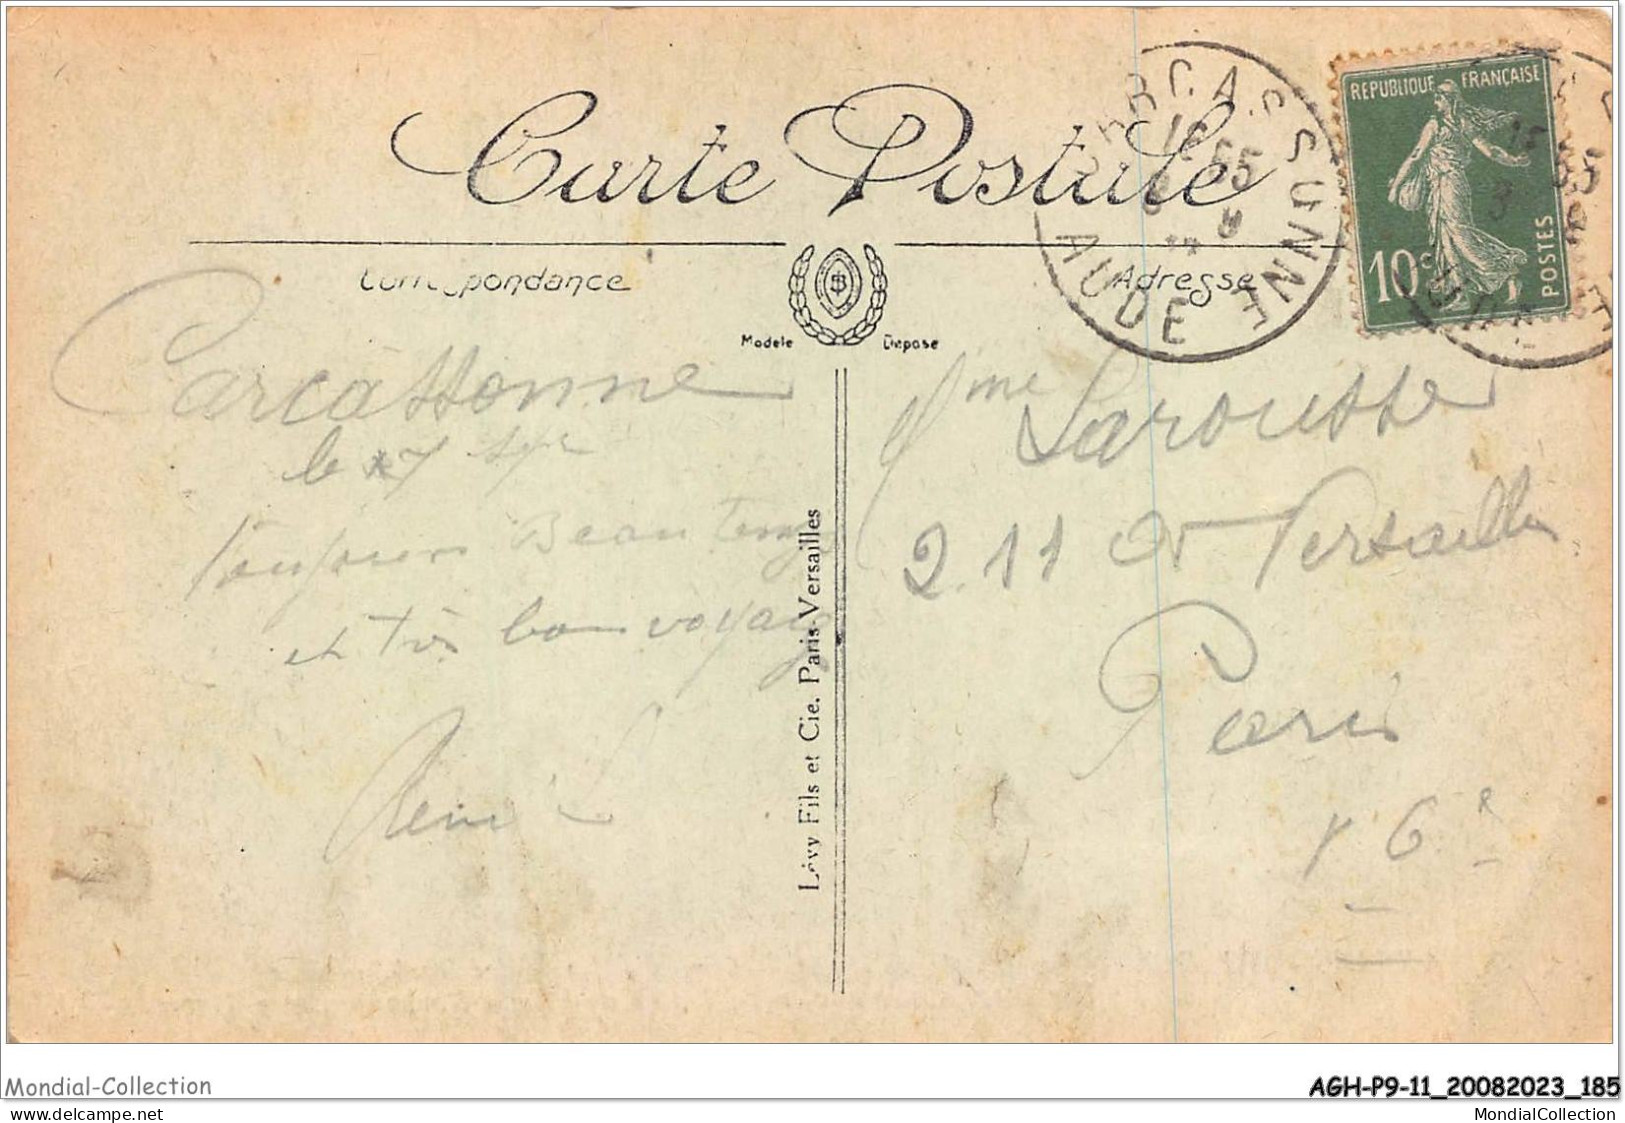 Carte Postale
CARCASSONNE
AUDE
REPUBLIQUE FRANÇAISE
10c
POSTES
Correspondance
Adresse
Modèle Déposé
Carcassonne
le 7
toujours Beau temps
et très bon voyage
Lévy Fils et Cie. Paris-Versailles
Mme Larousse
211 Versailles
Paris
6
Mondial-Collection
AGH-P9-11_20082023_185
www.delcampe.net
MondialCollection